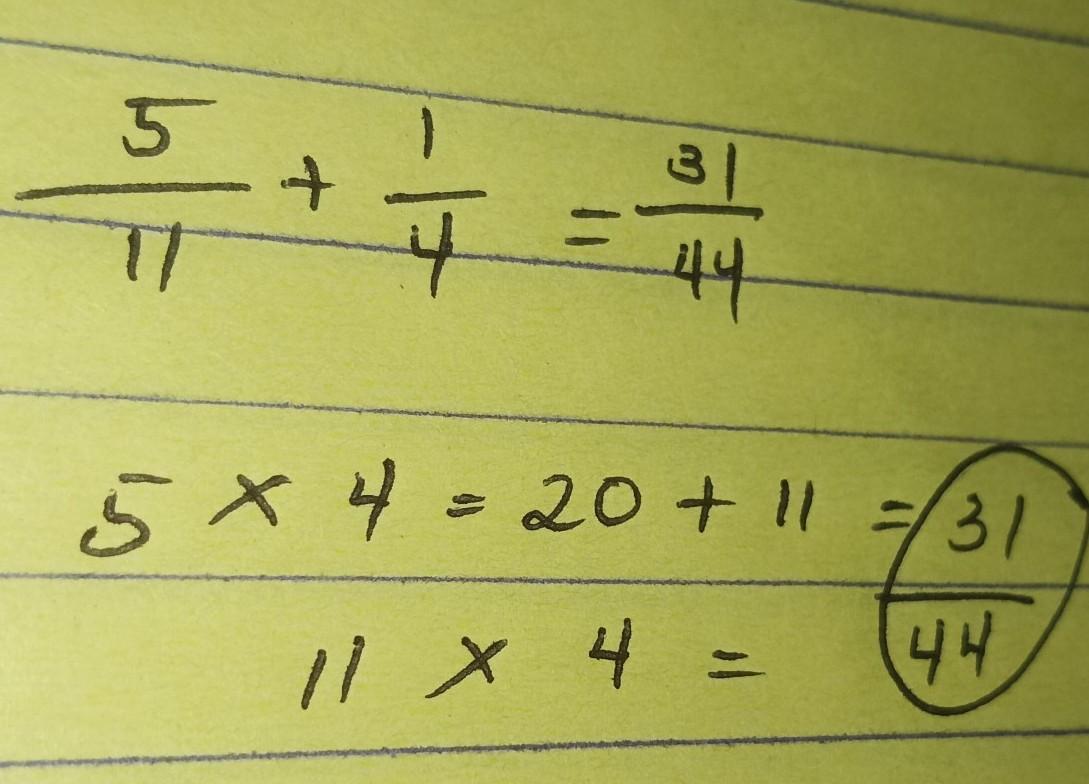 5/11 + 1/4 = 31/44
5 × 4 = 20 + 11 = 31
11 × 4 = 44